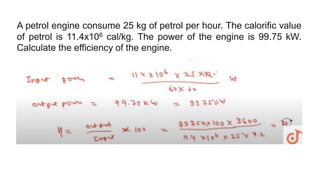 A petrol engine consume 25 kg of petrol per hour. The calorific value
of petrol is 11.4x10⁶ cal/kg. The power of the engine is 99.75 kW.
Calculate the efficiency of the engine.
Input power = 11.4 x 10⁶ x 25 x 4.2 / 60 x 60 W
output power = 99.75 kW = 99750 W
η = output / Input x 100 = 99750 x 100 x 3600 / 11.4 x 10⁶ x 25 x 4.2 =